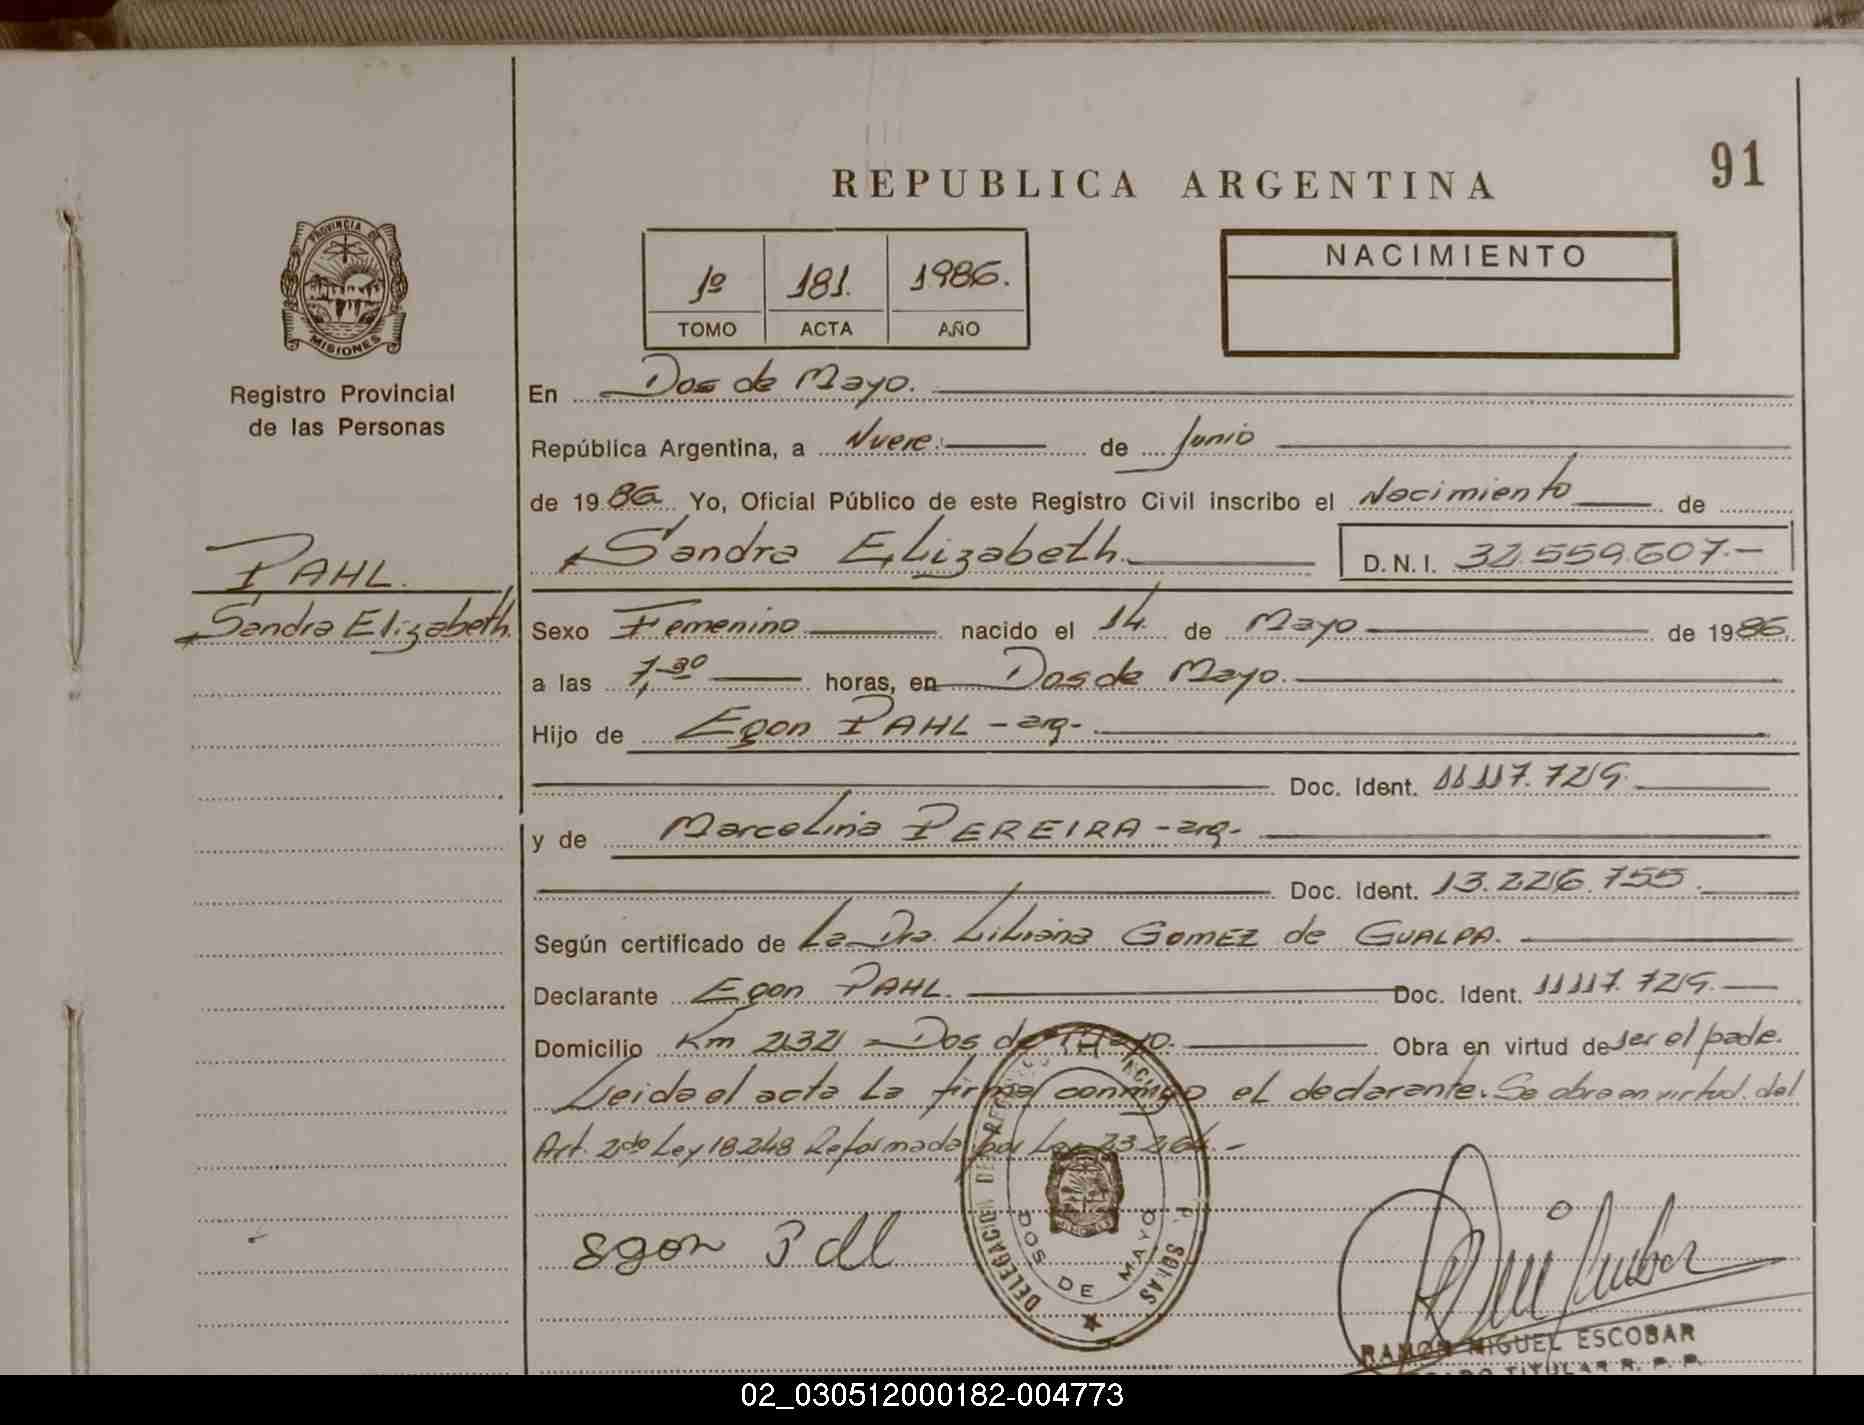 91
REPUBLICA ARGENTINA
PROVINCIA DE
MISIONES
1º 181. 1986.
TOMO ACTA AÑO
NACIMIENTO
Registro Provincial
de las Personas
PAHL.
Sandra Elizabeth.
En Dos de Mayo.
República Argentina, a Nueve. de Junio
de 1986 Yo, Oficial Público de este Registro Civil inscribo el Nacimiento de
Sandra Elizabeth. D.N.I. 32.559.607.-
Sexo Femenino nacido el 14 de Mayo de 1986.
a las horas, en Dos de Mayo.
Hijo de Egon PAHL - arg-
Doc. Ident. 11.117.729.
y de Marcelina PEREIRA - arg-
Doc. Ident. 13.226.755.
Según certificado de La Dra. Liliana GOMEZ de GUALPA.
Declarante Egon PAHL. Doc. Ident. 11.117.729.
Domicilio Km 232 - Dos de Mayo. Obra en virtud de ser el padre.
Leida el acta la firma conmigo el declarante. Se obra en virtud del
Art. 2do Ley 18.248 Reformada por Ley 23.264.-
Egon Pahl
DELEGACION DEL
DOS DE MAYO
RAMON MIGUEL ESCOBAR
TITULAR R. P. P.
02_030512000182-004773